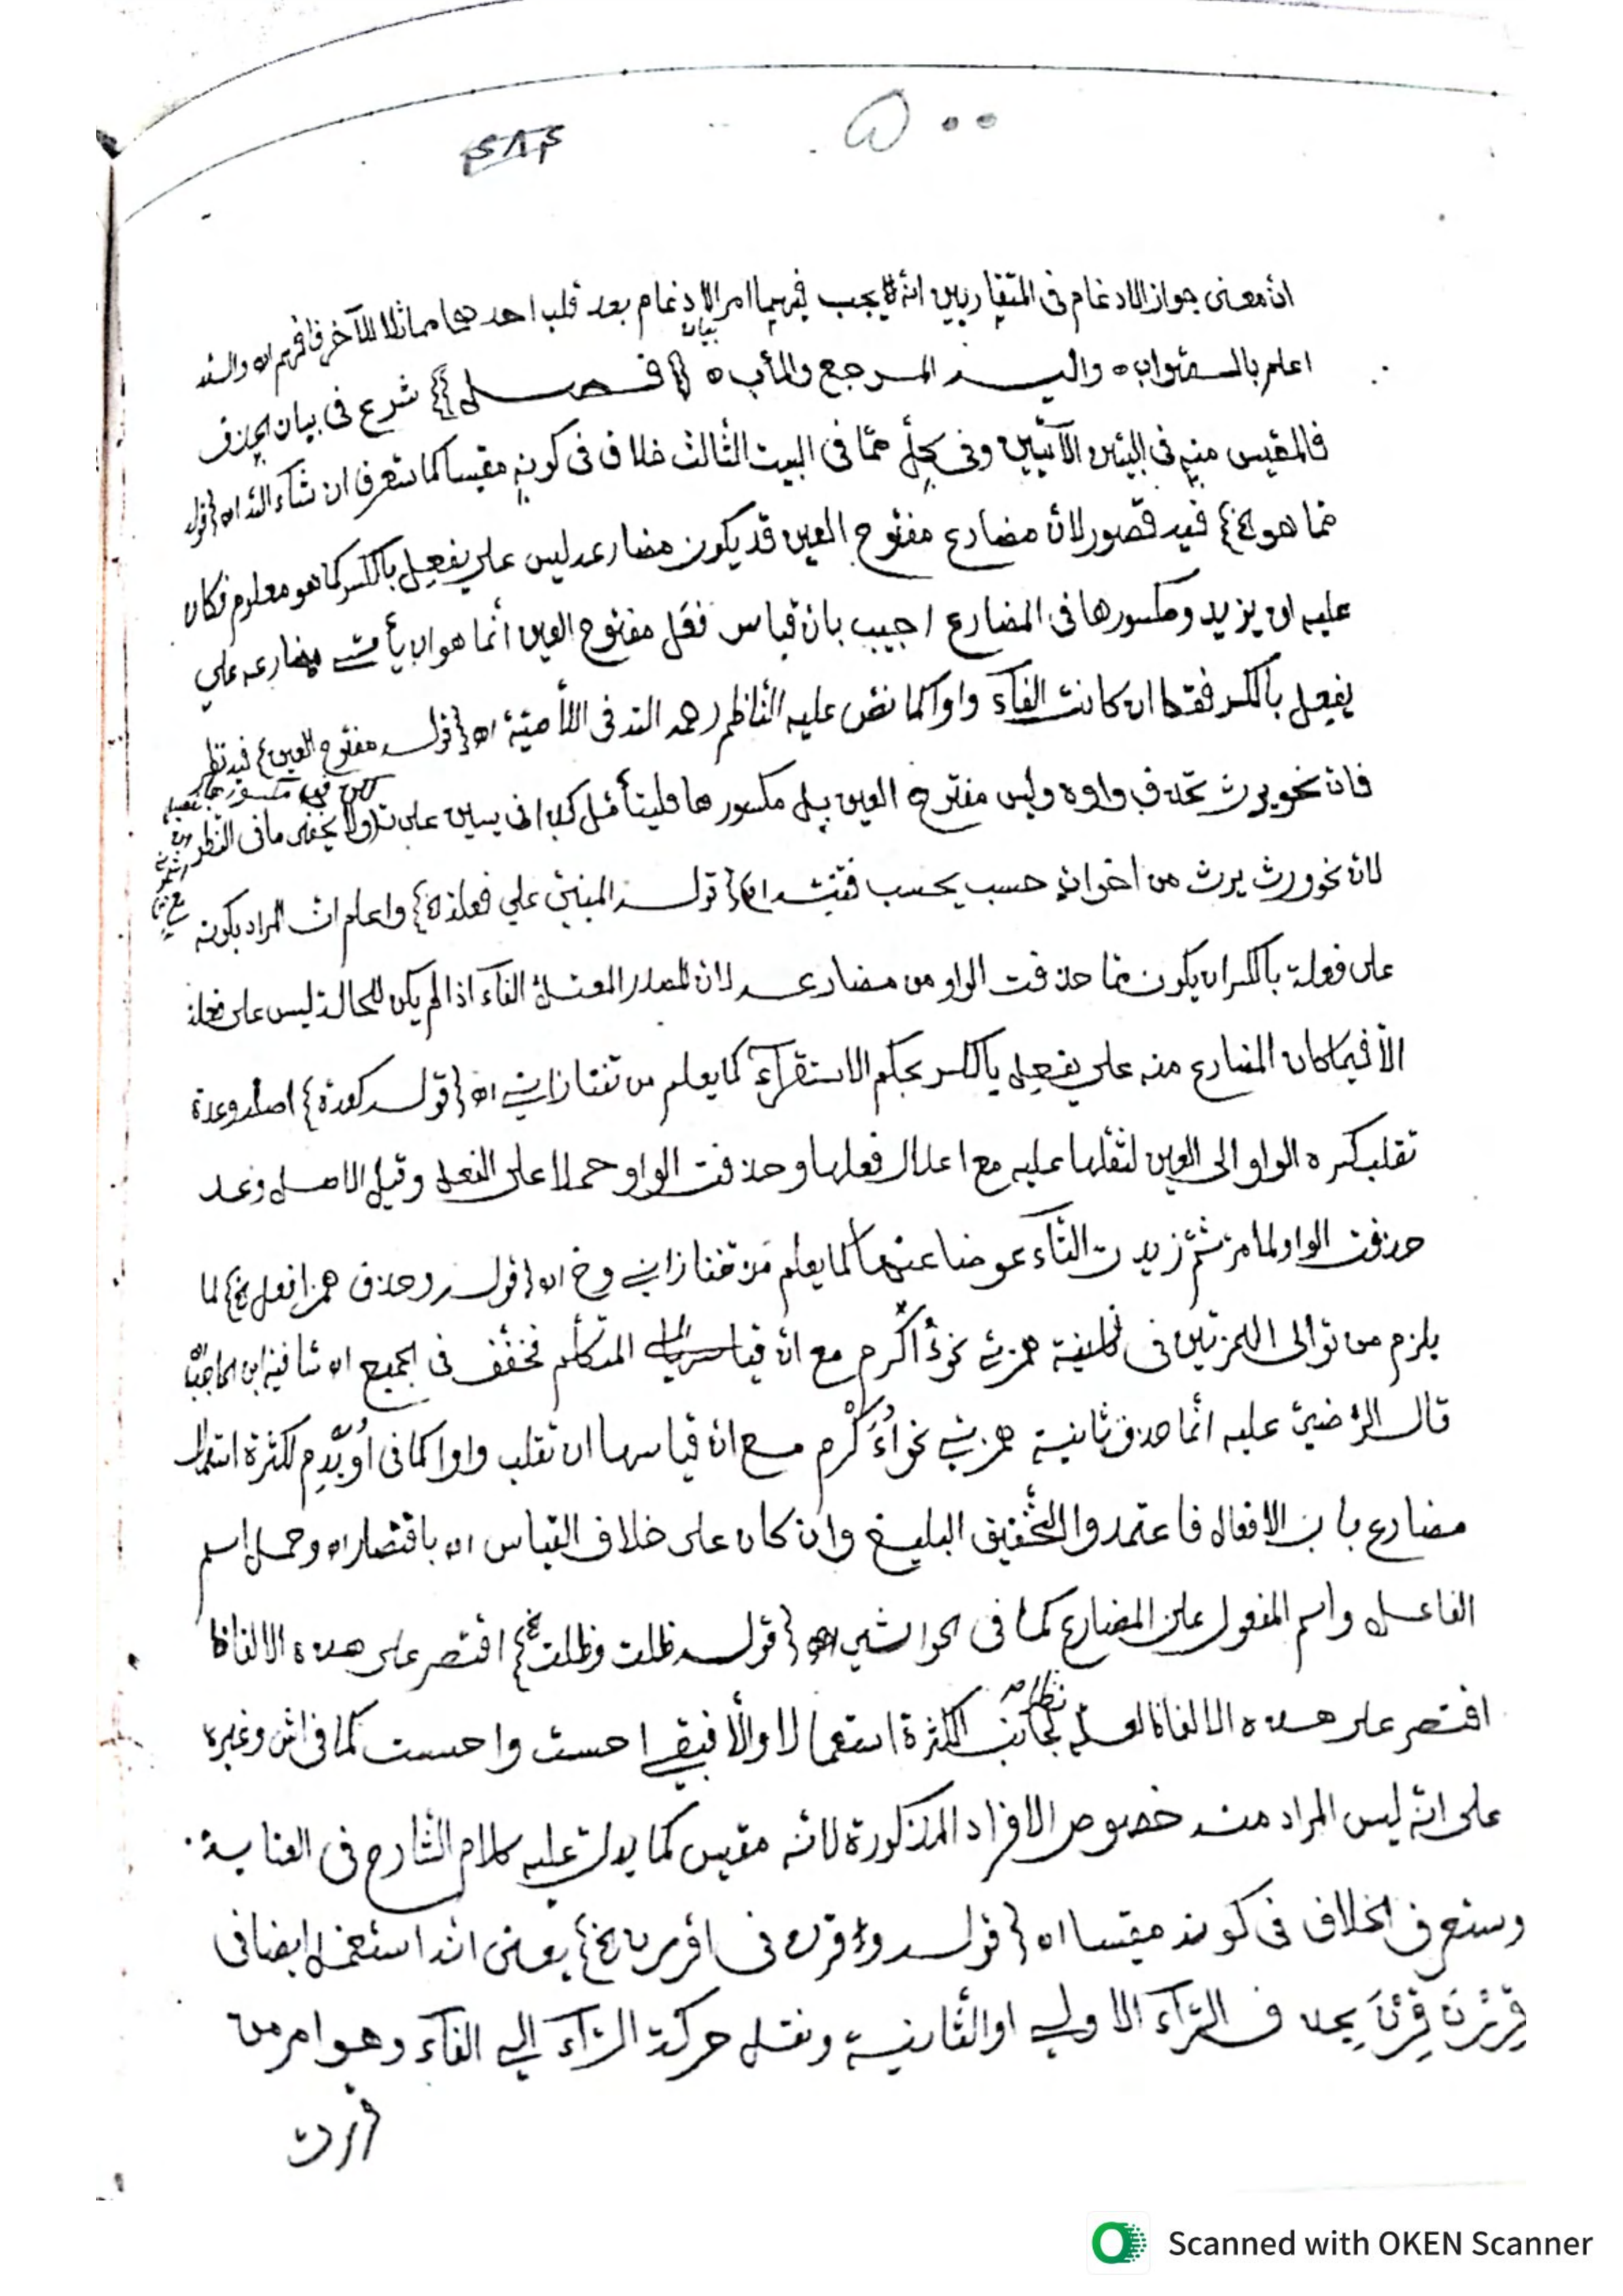 ٥٠٠
٤٨٤
انّ معنى جواز الادغام فى المتقاربين انّه لا يجب فيهما امر الادغام بعد قلب احدهما مماثلا للآخر فافهم اه والله
اعلم بالصواب ه واليه المرجع والمأب ه { فصل } شرع فى بيان الحذف
بيان
فالمقيس منه فى البيتين الآتيين وفى كل ممّا فى البيت الثالث خلاف فى كونه مقيسا كما ستعرف ان شآء الله اه {قوله
مما هو الخ} فيه قصور لانّ مضارع مفتوح العين قد يكون مضارعه ليس على يفعِل بالكسر كما هو معلوم فكان
عليه ان يزيد ومكسورها فى المضارع اجيب بان قياس فعَل مفتوح العين انّما هو ان يأتى مضارعه على
يفعِل بالكسر فقط ان كانت الفآء واوا كما نصّ عليه النّاظم رحمه الله فى اللّاميّة اه {قوله مفتوح العين} فيه نظر
فانّ نحو يرث تحذف واوه وليس مفتوح العين بل مكسورها فليتأمّل كذا فى يسين على ولا يخفى ما فى النظر
لانّ نحو ورث يرث من اخوات حسب يحسب فتنبّه اه {قوله المبنيّ على فعلة الخ} واعلم انّ المراد بكونه
على فعلة بالكسر ان يكون ممّا حذفت الواو من مضارعه لانّ المصدر المعتلّ الفآء اذا لم يكن للحالة ليس على فعلة
الّا فيما كان المضارع منه على يفعِل بالكسر بحكم الاستقرآء كما يعلم من تفتازانى اه {قوله كعدة} اصله وعدة
نقلب كسره الواو الى العين لثقلها عليه مع اعلال فعلها وحذفت الواو حملا على الفعل وقيل الاصل وعد
حذفت الواو لما مرّ ثمّ زيدت التّآء عوضا عنها كما يعلم من تفتازانى وخ اه {قوله وحذف همز افعل الخ} لما
يلزم من توالى الهمزتين فى همزتى نحو أُأَكرم مع انّ قياس المتكلّم فخفّف فى الجميع اه شافية ابن الحاجب
قال الرّضيّ عليه انّما حذف ثانية همزتى نحو اُءَكْرم مع انّ قياسها ان تقلب واوا كما فى اُوَيدِم لكثرة استعمال
مضارع باب الافعال فاعتمدوا التّخفيف البليغ وان كان على خلاف القياس اه باقتصار اه وحمل اسم
الفاعل واسم المفعول على المضارع كما فى الحواشى اه {قوله ظلت وظلت الخ} اقتصر على هذه الالفاظ
اقتصر على هذه الالفاظ لكثرة استعمالا والّا فبقى احست واحسست كما فى اش وغيره
على انّه ليس المراد منه خصوص الافراد المذكورة لانّه مقيس كما يدلّ عليه كلام الشّارح فى العناية
وستعرف الخلاف فى كونه مقيسا اه {قوله وقرن فى اقررن الخ} يعنى انّه استعمل ايضا فى
قِرِرْنَ قِرْنَ بحذف الرّآء الاولى او الثّانية ونقل حركة الرّآء الى الفآء وهو امر من
قررت
Scanned with OKEN Scanner